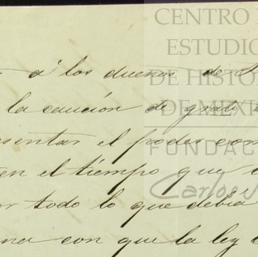 CENTRO
ESTUDIO
DE HISTO
DE MÉXI
FUNDAC
Carlos
á los dueños de
la caución de
esentar el poder con
en el tiempo que
por todo lo que debia
ena con que la ley